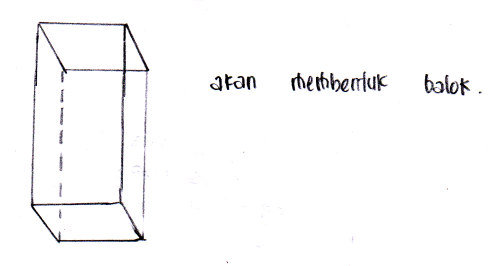 akan membentuk balok.